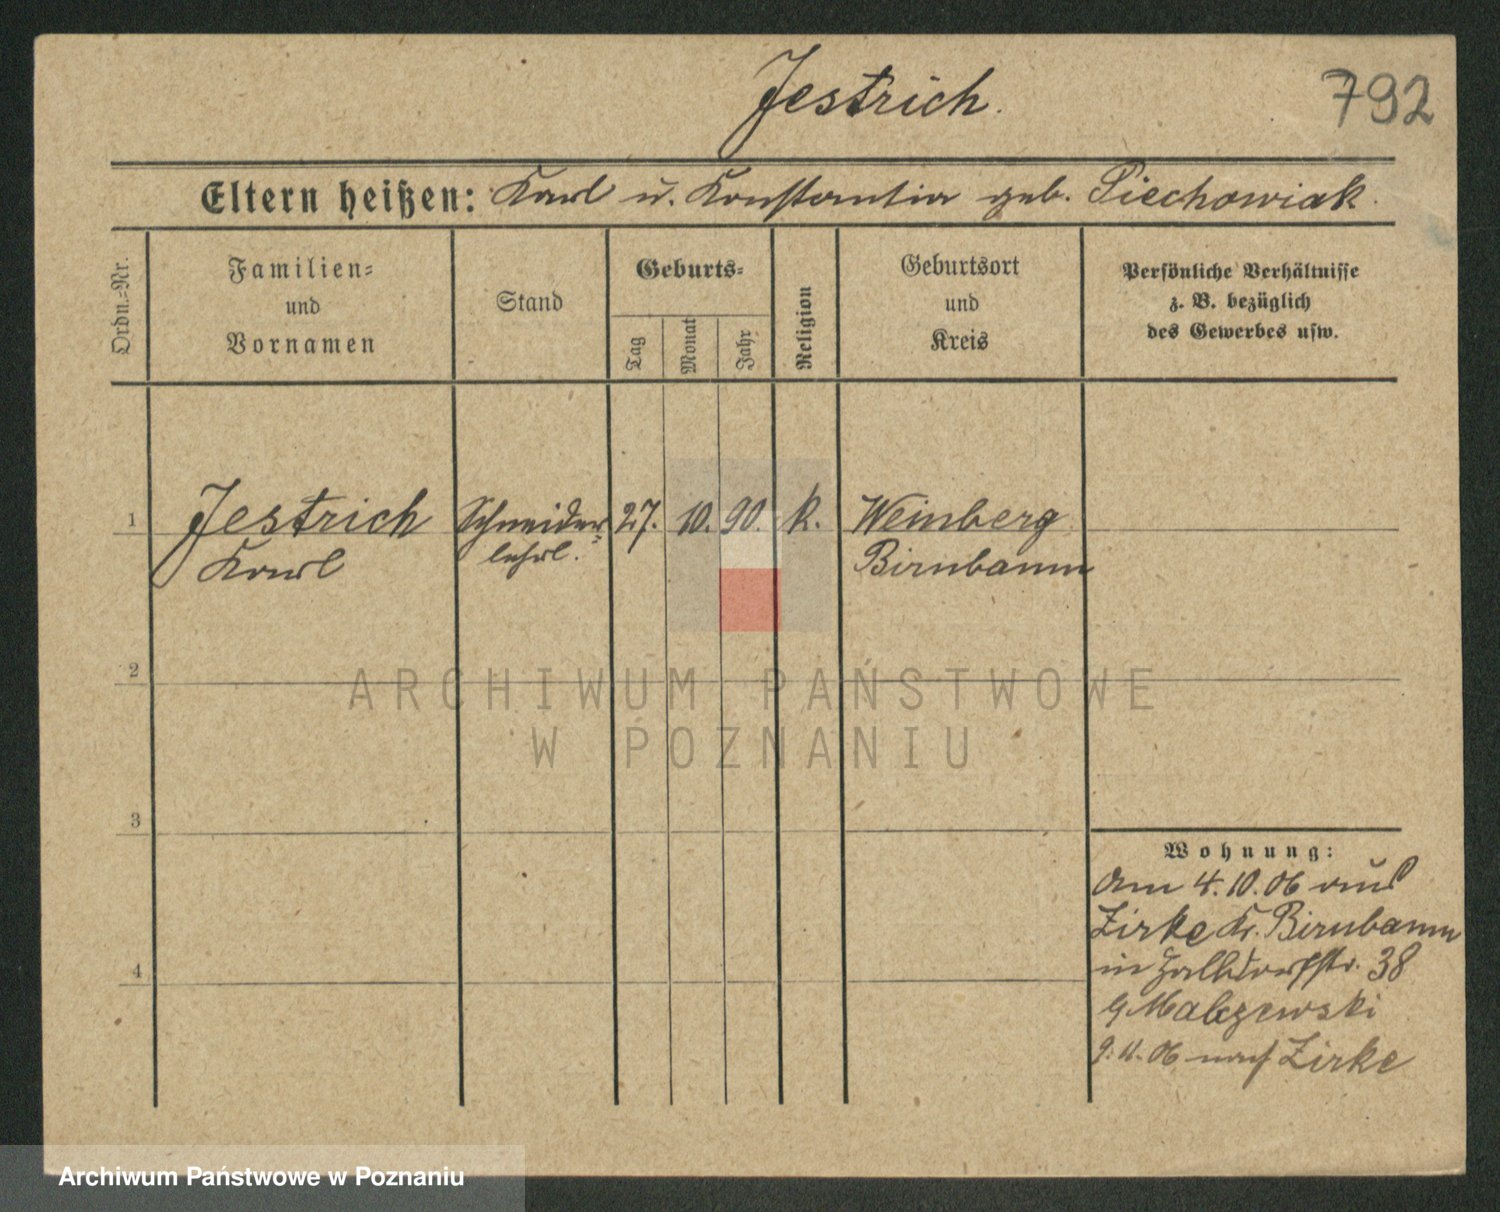 Jestrich.
792
Eltern heißen: Karl u. Konstantia geb. Piechowiak.
Ordn.-Nr.
Familien-
und
Vornamen
Stand
Geburts-
Tag
Monat
Jahr
Religion
Geburtsort
und
Kreis
Persönliche Verhältnisse
z. B. bezüglich
des Gewerbes usw.
1 Jestrich Schneider- 27. 10. 90. k. Weinberg
Karl lehrl. Birnbaum
2
ARCHIWUM PAŃSTWOWE
W POZNANIU
3
Wohnung:
Am 4.10.06 aus
Zirke Kr. Birnbaum
4
in Halldorfstr. 38
Malczewski
9.11.06 nach Zirke
Archiwum Państwowe w Poznaniu